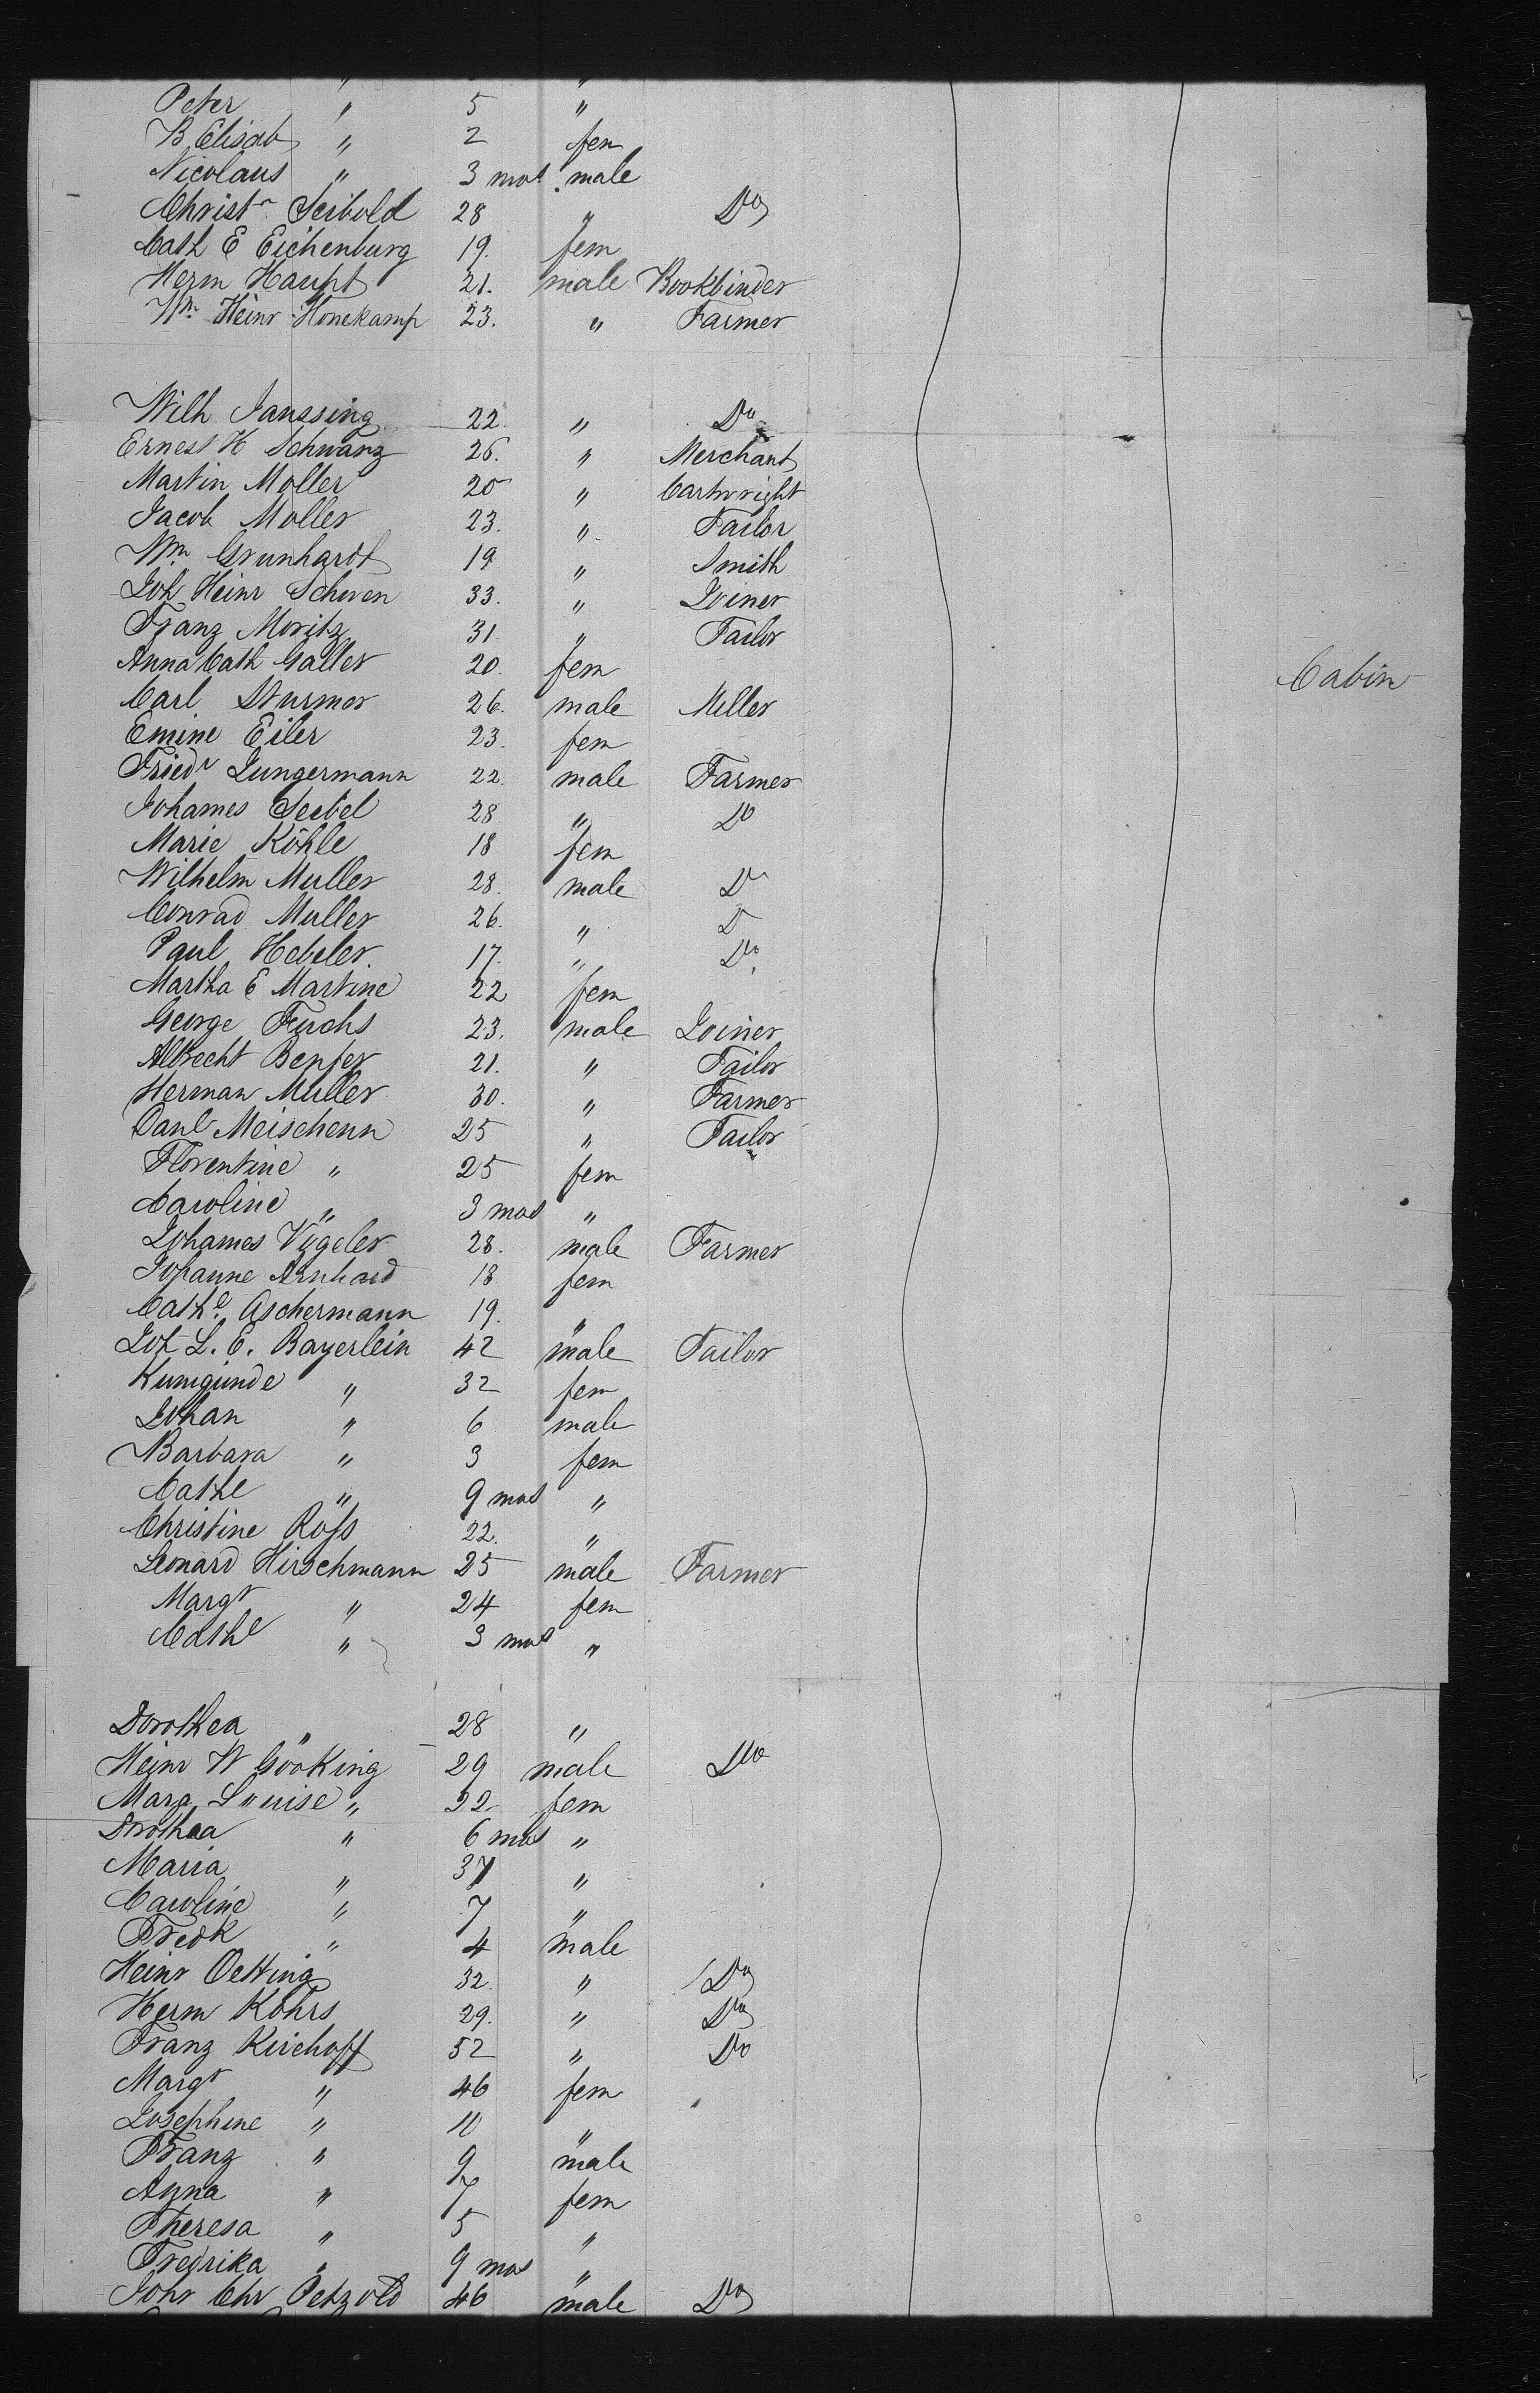 Peter " 5 "
B Elisab " 2 fem
Nicolaus " 3 mos male
Christn Seibold 28 " Do
Cath E Eichenburg 19. fem
Herm Haupt 21. male Bookbinder
Wm Heinr Honekamp 23. " Farmer
Wilh Janssing 22. " Do
Ernest H Schwarz 26. " Merchant
Martin Moller 20 " Cartwright
Jacob Moller 23. " Tailor
Wm Grunhardt 19 " Smith
Joh Heinr Scheven 33. " Joiner
Franz Moritz 31. " Tailor
Anna Cath Galler 20. fem Cabin
Carl Sturmer 26. male Miller
Emine Eiler 23. fem
Friedr Jungermann 22. male Farmer
Johames Seibel 28 " Do
Marie Köhle 18 fem
Wilhelm Muller 28. male Do
Conrad Muller 26. " Do
Paul Hebeler 17. " Do
Martha E Martine 22 fem
George Fuchs 23. male Joiner
Albrecht Bepfer 21. " Tailor
Herman Muller 30. " Farmer
Danl Meischenn 25 " Tailor
Florentine " 25 fem
Caroline " 3 mos "
Johames Vögeler 28. male Farmer
Johanne Arnhard 18 fem
Cathe Aschermann 19. "
Joh L. E. Bayerlein 42 male Tailor
Kunigunde " 32 fem
Johan " 6 male
Barbara " 3 fem
Cathe " 9 mos "
Christine Röfs 22. "
Leonard Hirschmann 25 male Farmer
Margt " 24 fem
Cathe " 3 mos "
Dorothea " 28 "
Heinr W Gööking 29 male Do
Marg Louise " 22 fem
Dorothea " 6 mos "
Maria " 37 "
Caroline " 7 "
Fredk " 4 male
Heinr Oetting 32. " Do
Herm Köhrs 29. " Do
Franz Kirchoff 52 " Do
Margt " 46 fem
Josephine " 10 "
Franz " 9 male
Anna " 7 fem
Theresa " 5 "
Fredrika " 9 mos "
Johr Chr Petzold 46 male Do